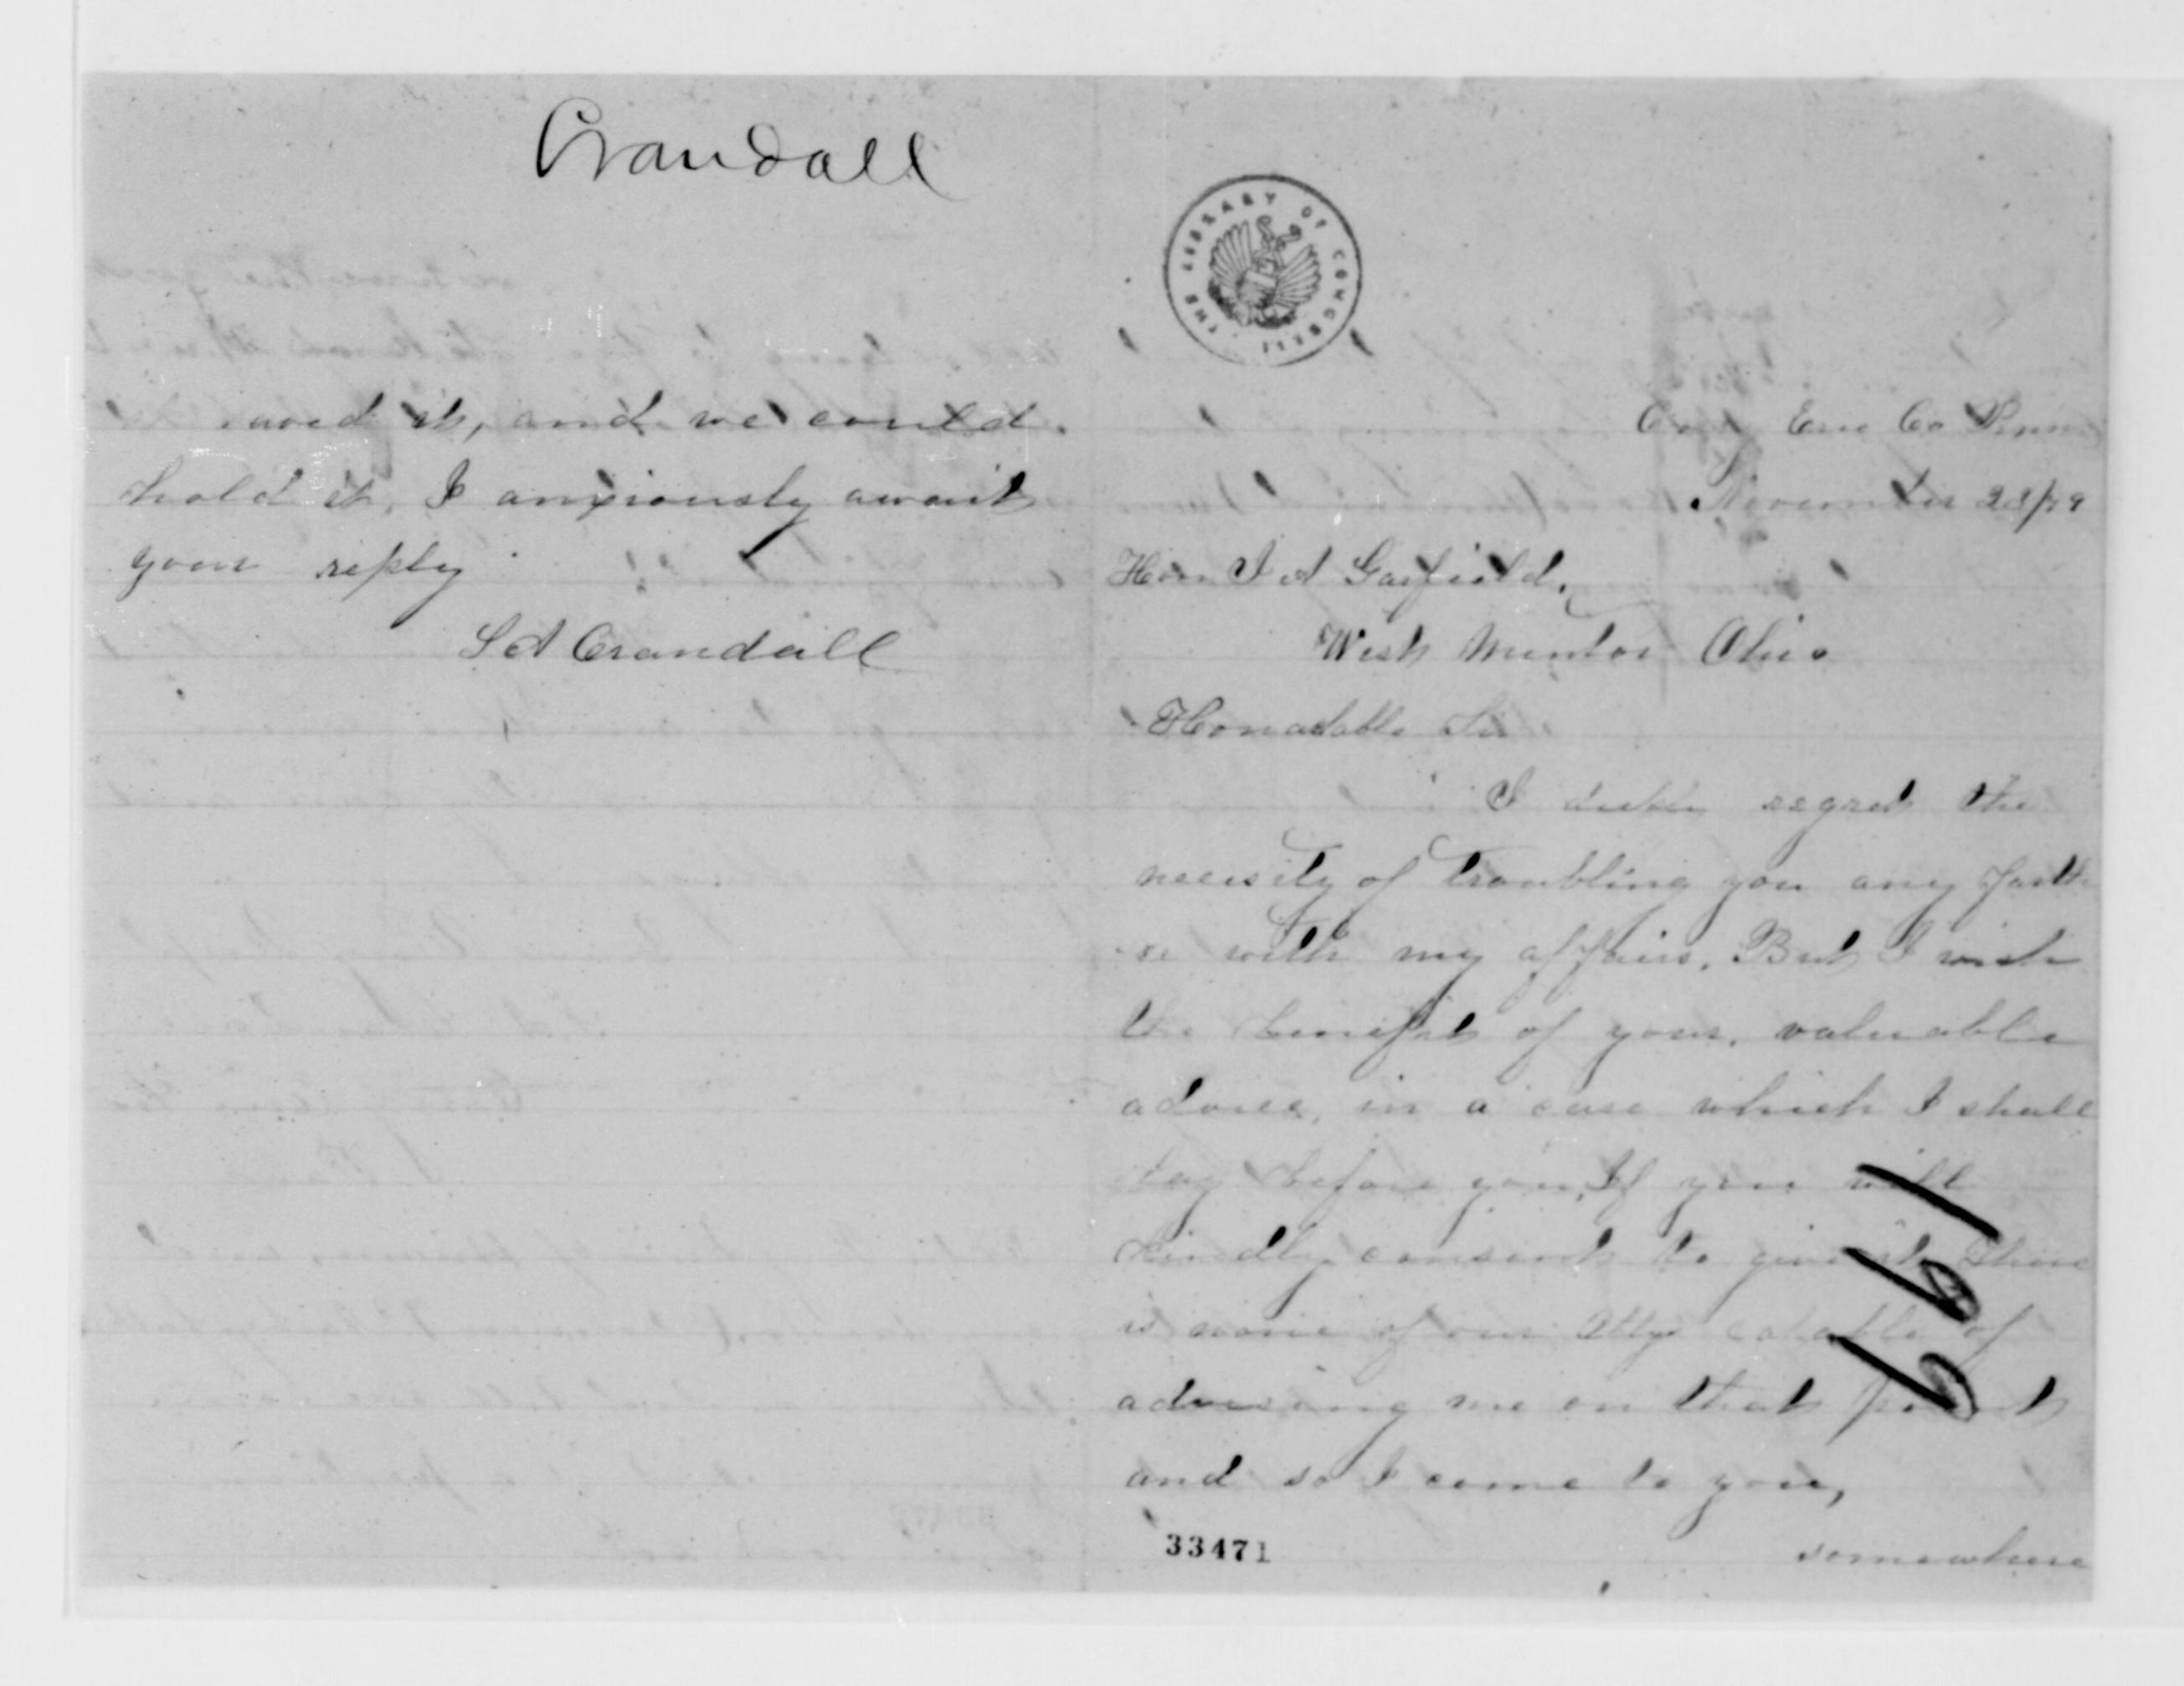 Crandall
it, and we could
hold it, I anxiously await
your reply
S A Crandall
THE LIBRARY OF CONGRESS
Erie Co Penn
November 28/79
Hon J A Garfield,
West Mentor Ohio
Honorable Sir
I regret the
necesity of troubling you any farth
er with my affairs. But I wish
the benifit of your, valuable
advice, in a case which I shall
lay before you, If you will
kindly consent to give it. There
is none of our Attys capable of
advising me on that point
and so I come to you,
33471
somewhere